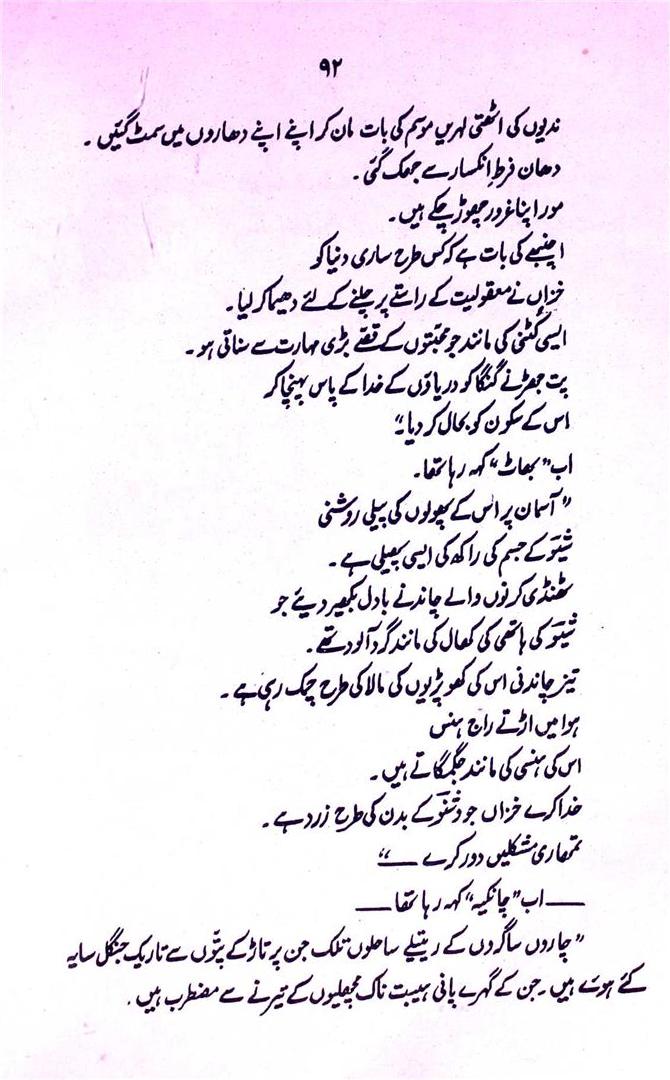 ۹۲
ندیوں کی اٹھتی لہریں موسم کی بات مان کر اپنے اپنے دھاروں میں سمٹ گئیں ۔
دھان فرطِ انکسار سے جھک گئی ۔
مور اپنا غرور چھوڑ چکے ہیں۔
اچنبھے کی بات ہے کہ کس طرح ساری دنیا کو
خزاں نے معقولیت کے راستے پر چلنے کے لئے دھیما کر لیا ۔
ایسی کٹنی کی مانند جو محبّتوں کے قصّے بڑی مہارت سے سناتی ہو ۔
پت جھڑ نے گنگا کو دریاؤں کے خدا کے پاس پہنچا کر
اس کے سکون کو بحال کر دیا ۔“
اب ”بھاٹ“ کہہ رہا تھا ۔
” آسمان پر اس کے پھولوں کی پیلی روشنی
شیَو کے جسم کی راکھ کی ایسی پھیلی ہے ۔
ٹھنڈی کرنوں والے چاند نے بادل بکھیر دیئے جو
شیَو کی ہاتھی کی کھال کی مانند گرد آلود تھے ۔
تیز چاندنی اس کی کھوپڑیوں کی مالا کی طرح چمک رہی ہے ۔
ہوا میں اڑتے راج ہنس
اس کی ہنسی کی مانند جگمگاتے ہیں ۔
خدا کرے خزاں جو وشنو کے بدن کی طرح زرد ہے ۔
تمھاری مشکلیں دور کرے ——“
—— اب ”چانکیہ“ کہہ رہا تھا ——
” چاروں ساگروں کے ریتیلے ساحلوں تلک جن پر تاڑ کے پتّوں سے تاریک جنگل سایہ
کئے ہوئے ہیں ۔ جن کے گہرے پانی ہیبت ناک مچھلیوں کے تیرنے سے مضطرب ہیں ۔